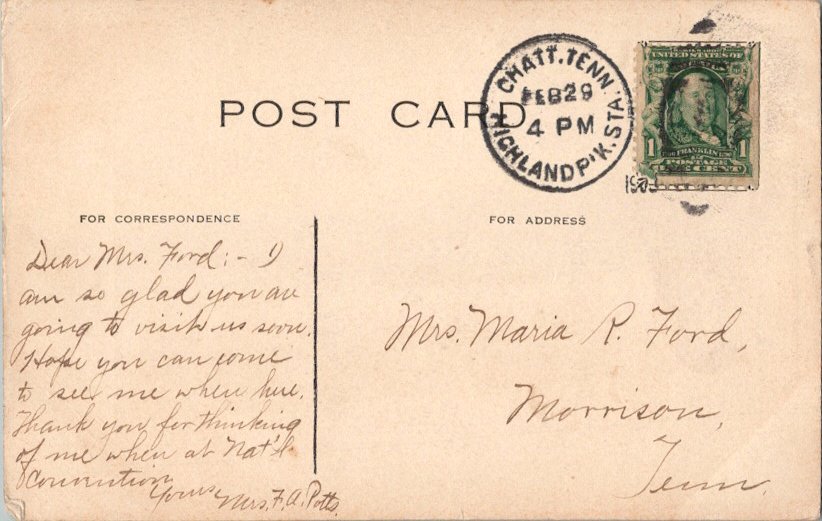 POST CARD
CHATT. TENN.
FEB 29
4 PM
HIGHLAND P'K. STA.
UNITED STATES OF
FRANKLIN
1 POSTAGE 1
ONE CENT
FOR CORRESPONDENCE
FOR ADDRESS
Dear Mrs. Ford:- I
am so glad you are
going to visit us soon.
Hope you can come
to see me when here.
Thank you for thinking
of me when at Nat'l
Convention
Yours Mrs. F. A. Potts.
Mrs. Maria R. Ford,
Morrison,
Tenn.